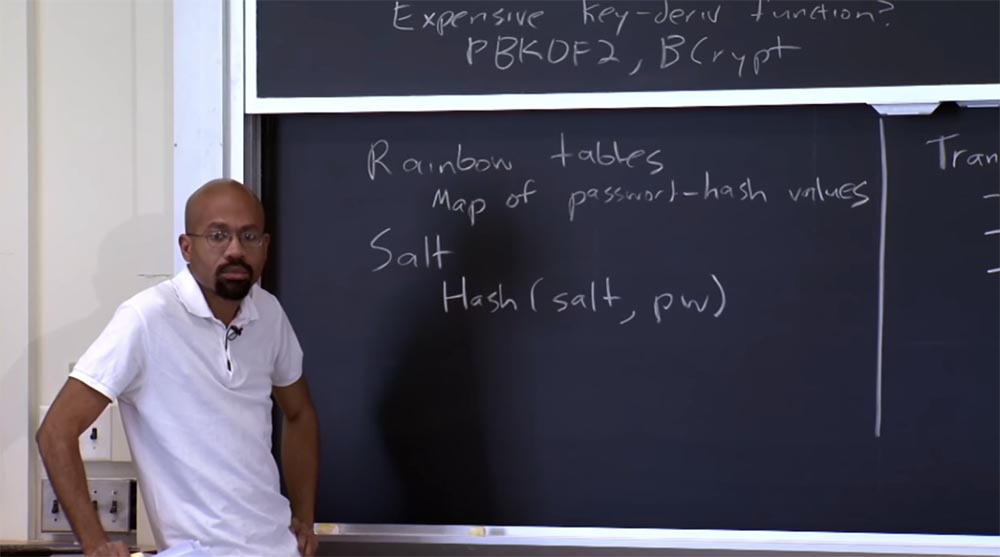 Expensive key-deriv function?
PBKDF2, BCrypt
Rainbow tables
Map of passwort-hash values
Salt
Hash(salt, pw)
Tran